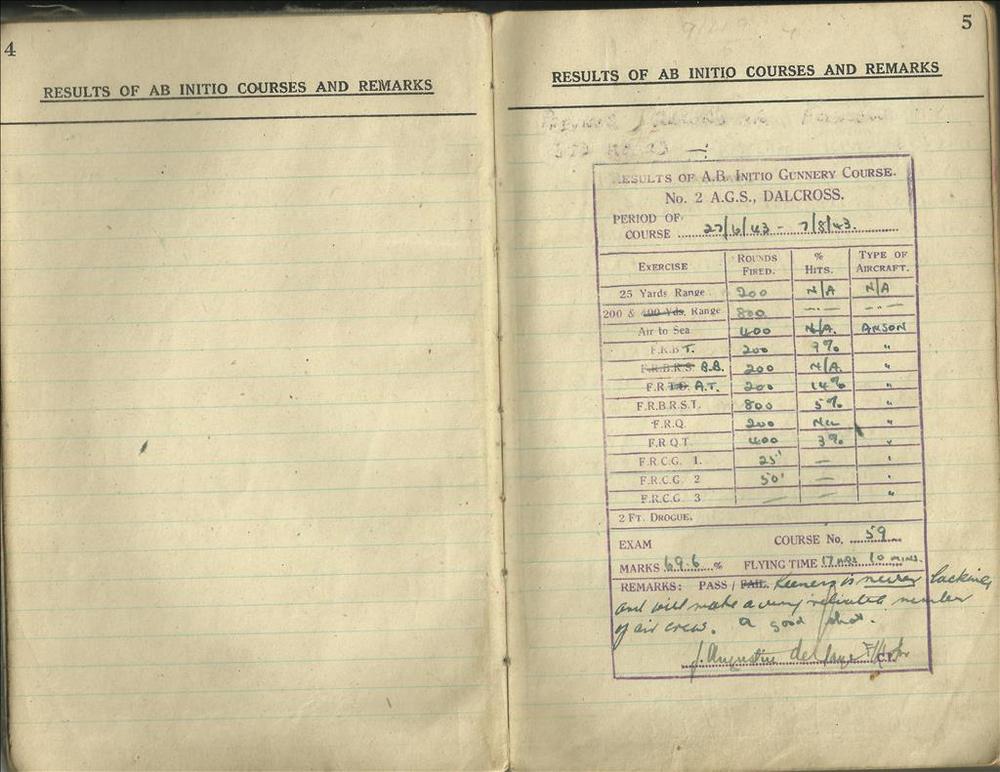 4
RESULTS OF AB INITIO COURSES AND REMARKS
5
RESULTS OF AB INITIO COURSES AND REMARKS
RESULTS OF A.B. INITIO GUNNERY COURSE.
No. 2 A.G.S., DALCROSS.
PERIOD OF
COURSE 27/6/43 - 7/8/43.
EXERCISE ROUNDS FIRED. % HITS. TYPE OF AIRCRAFT.
25 Yards Range 200 N/A N/A
200 & 400 Yds. Range 800 —"— —"—
Air to Sea 400 N/A. ANSON
F.R.B T. 200 9% "
F.R.B.R.S. B.B. 200 N/A. "
F.R. A.T. 200 14% "
F.R.B.R.S.T. 800 5% "
F.R.Q. 200 NIL "
F.R Q.T 400 3% "
F.R.C.G. 1. 25' — "
F.R.C.G. 2 50' — "
F.R.C.G. 3 — — "
2 FT. DROGUE.
EXAM COURSE No. 59
MARKS 69.6 % FLYING TIME 17 HRS 10 MINS.
REMARKS: PASS / FAIL. Keeness is never lacking
and will make a very reliable member
of air crew. a good shot.
J. Augustine F/Lt
C.I.